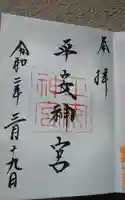 奉拝
平安神宮
令和三年三月十九日